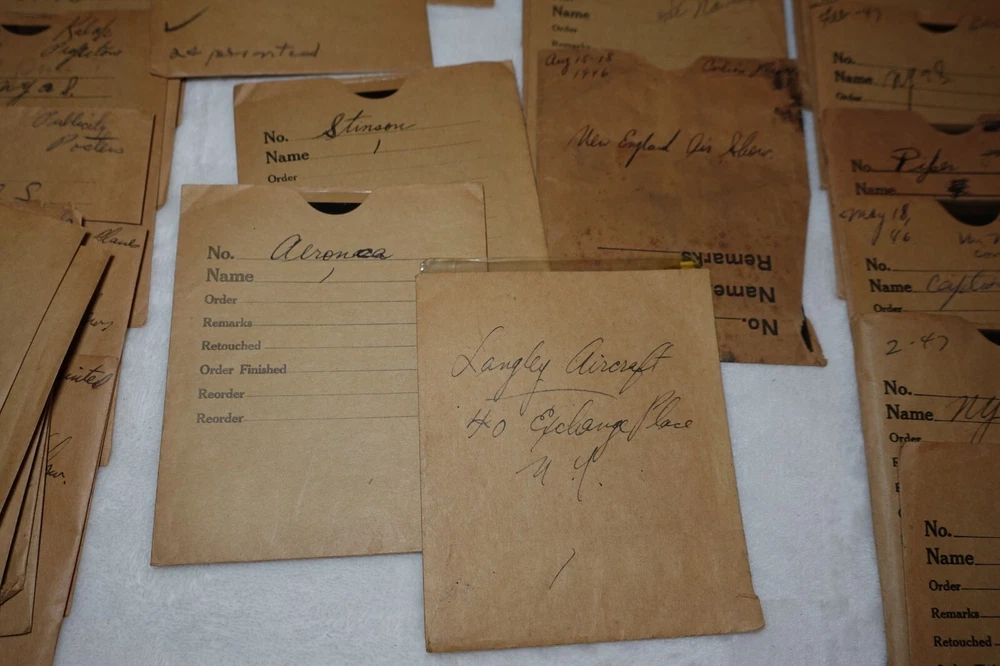 24 permitted
No. Stinson
Name
Order
Name
Order
Remarks
Aug 15-18
1946
New England Air Show
Remarks
Name
No.
No. Aeronca
Name
Order
Remarks
Retouched
Order Finished
Reorder
Reorder
Langley Aircraft
40 Exchange Place
N.Y.
Publicity
Posters
Feb-47
No.
Name
Order
No. Piper
Name
May 18,
46
No.
Name
Order
2-47
No.
Name
Order
No.
Name
Order
Remarks
Retouched